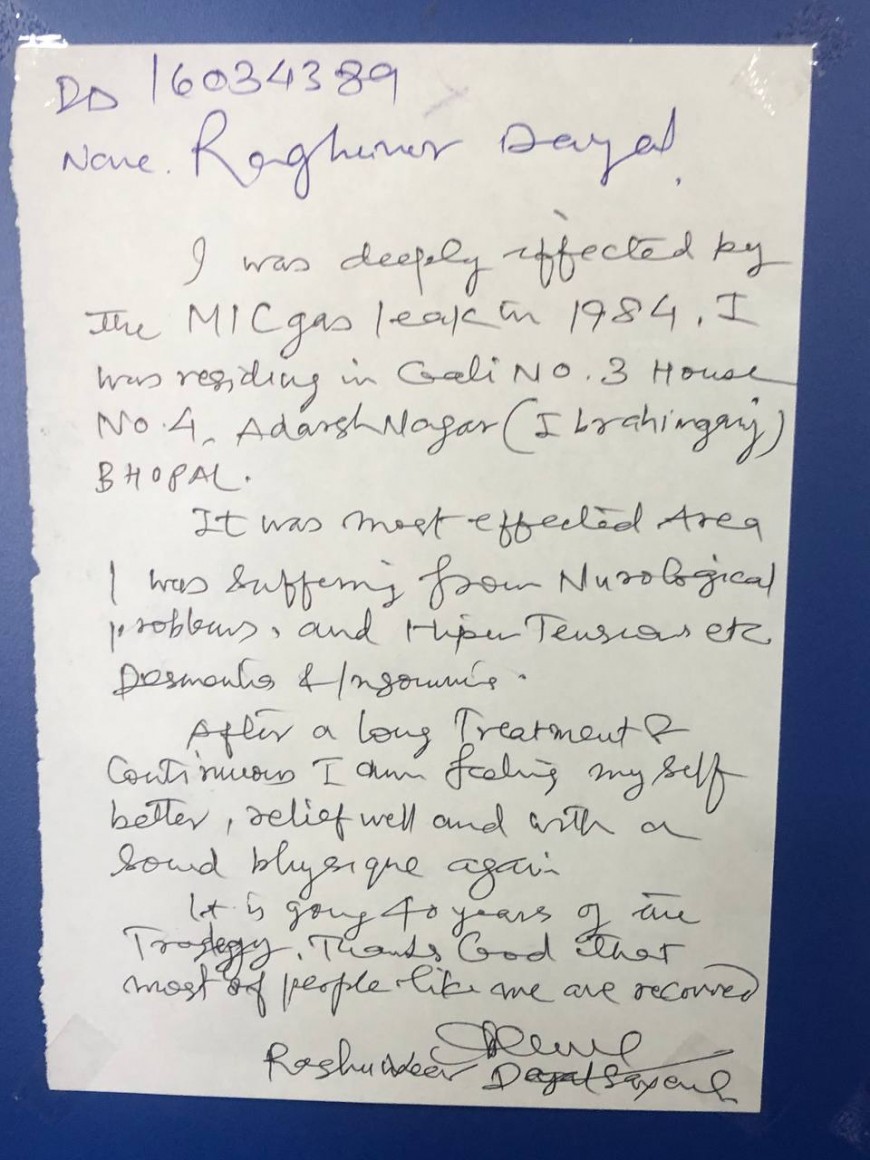 DD 16034389
Name. Raghuver Dayal,
I was deeply effected by
the MIC gas leak in 1984. I
was residing in Gali No. 3 House
No. 4, Adarsh Nagar (Ibrahimganj)
BHOPAL.
It was most effected Area
I was Suffering from Nurological
problems, and Hiper Tension etc
& Insomnia.
After a long Treatment &
Continuous I am feeling my self
better, relief well and with a
Sound physique again
It is going 40 years of the
Thanks God that
most of people like me are recovred
Raghuveer Dayal Saxena